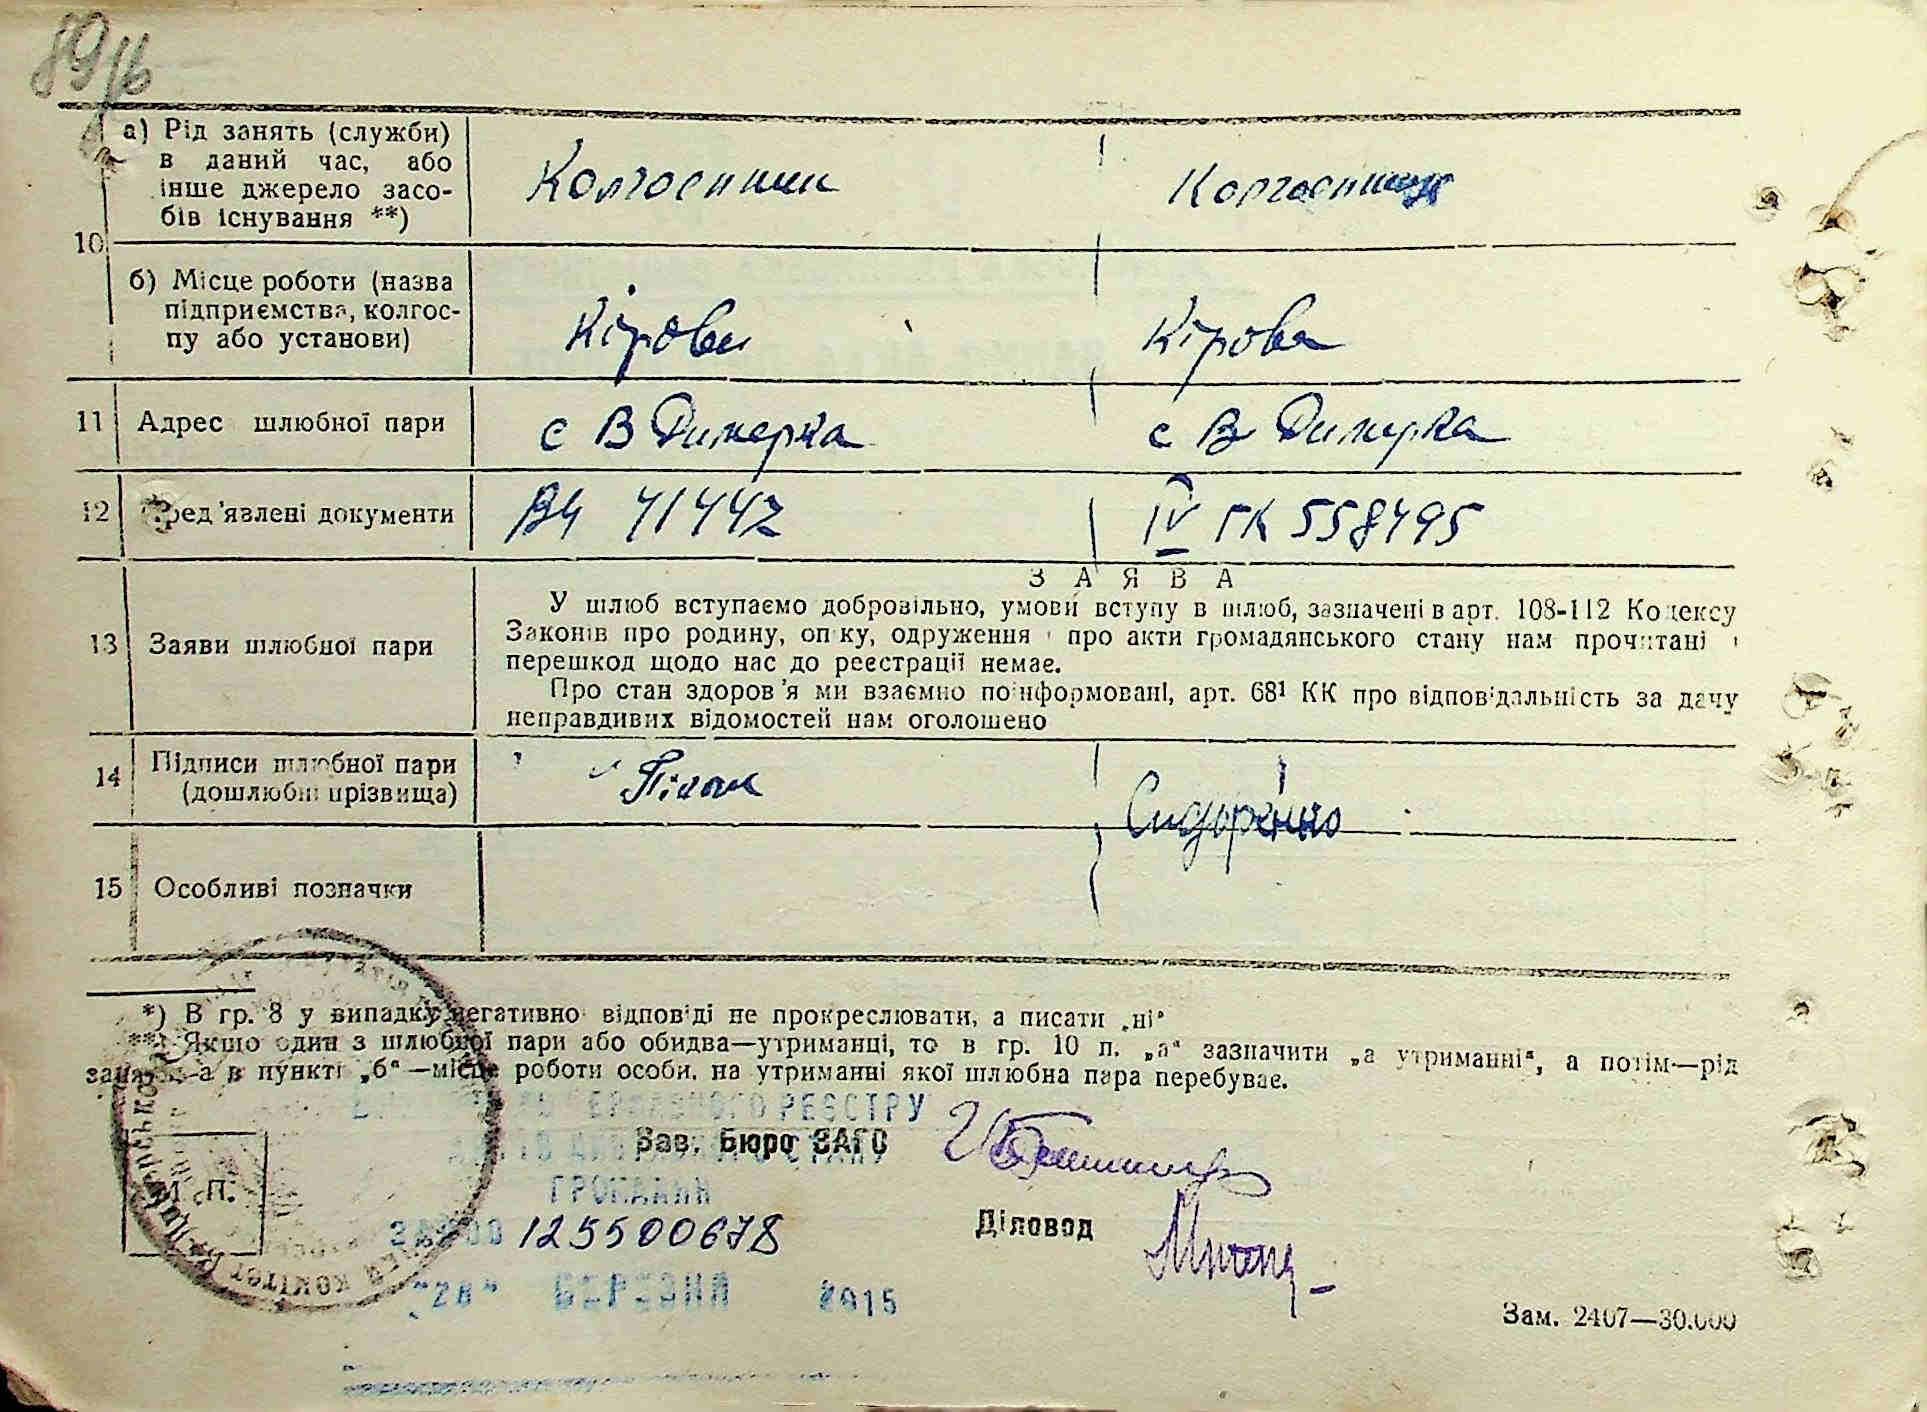 89
а) Рід занять (служби) Колгоспник Колгоспниця
в даний час, або
інше джерело засо-
бів існування **)
10
б) Місце роботи (назва
підприємства, колгос- Кірова Кірова
пу або установи)
11 Адрес шлюбної пари с В Димерка с В Димерка
12 Пред'явлені документи ВЧ 41442 IV ГК 558495
ЗАЯВА
У шлюб вступаємо добровільно, умови вступу в шлюб, зазначені в арт. 108-112 Кодексу
13 Заяви шлюбної пари Законів про родину, опіку, одруження і про акти громадянського стану нам прочитані і
перешкод щодо нас до реєстрації немає.
Про стан здоров'я ми взаємно поінформовані, арт. 68¹ КК про відповідальність за дачу
неправдивих відомостей нам оголошено
14 Підписи шлюбної пари
(дошлюбні прізвища) Сидоренко
15 Особливі позначки
*) В гр. 8 у випадку негативної відповіді не прокреслювати, а писати „ні“
**) Якщо один з шлюбної пари або обидва—утриманці, то в гр. 10 п. „а“ зазначити „а утриманні“, а потім—рід
занять—а в пункті „б“—місце роботи особи, на утриманні якої шлюбна пара перебуває.
ДЕРЖАВНОГО РЕЄСТРУ
Зав. Бюро ЗАГС
АКТІВ ЦИВІЛЬНОГО СТАНУ
М. П.
ГРОМАДЯН
ЗА № 00125500678
Діловод
"28" БЕРЕЗНЯ 2015
Зам. 2407—30.000